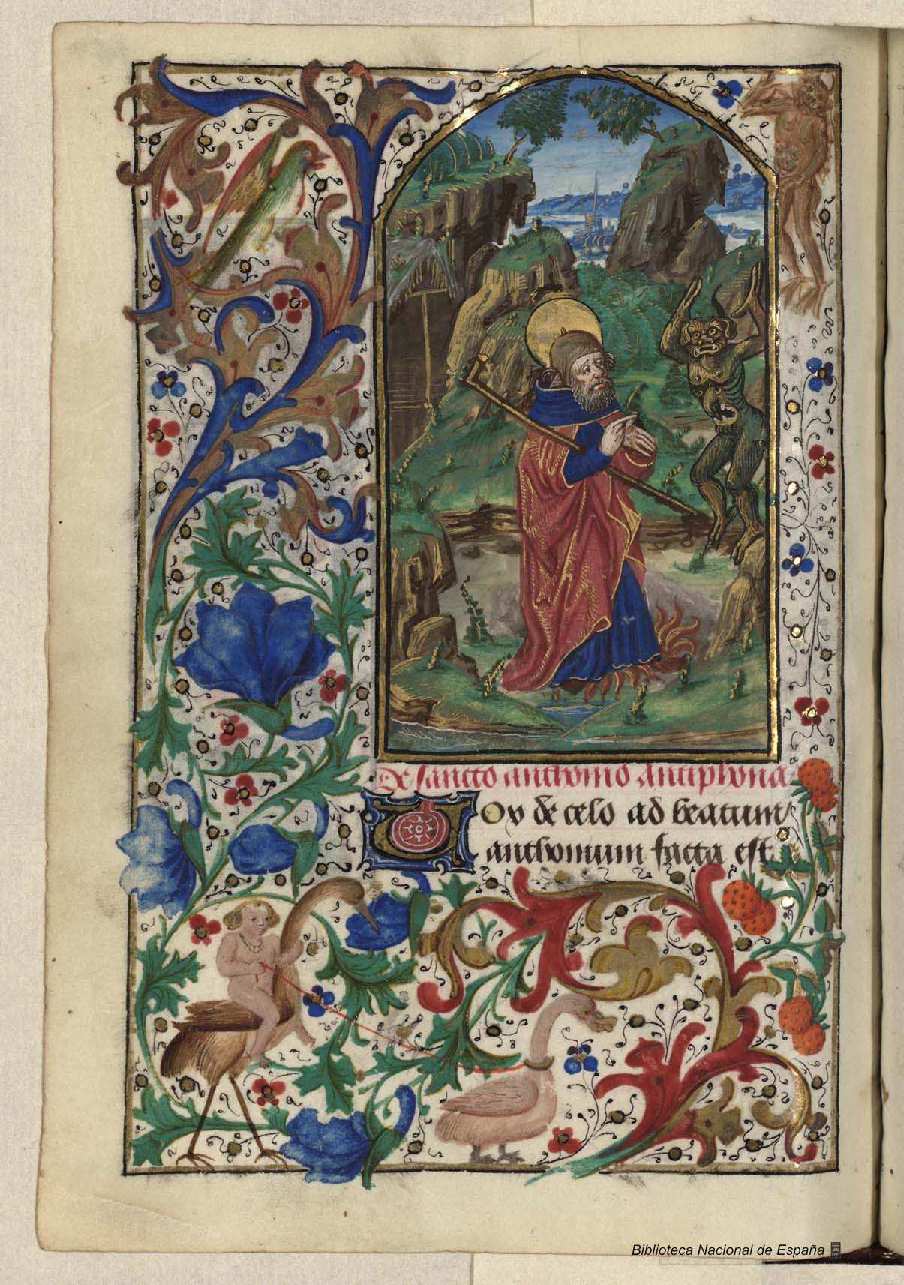 De sancto anthonio Antiphona
Vox de celo ad beatum
anthonium facta est.
Biblioteca Nacional de España